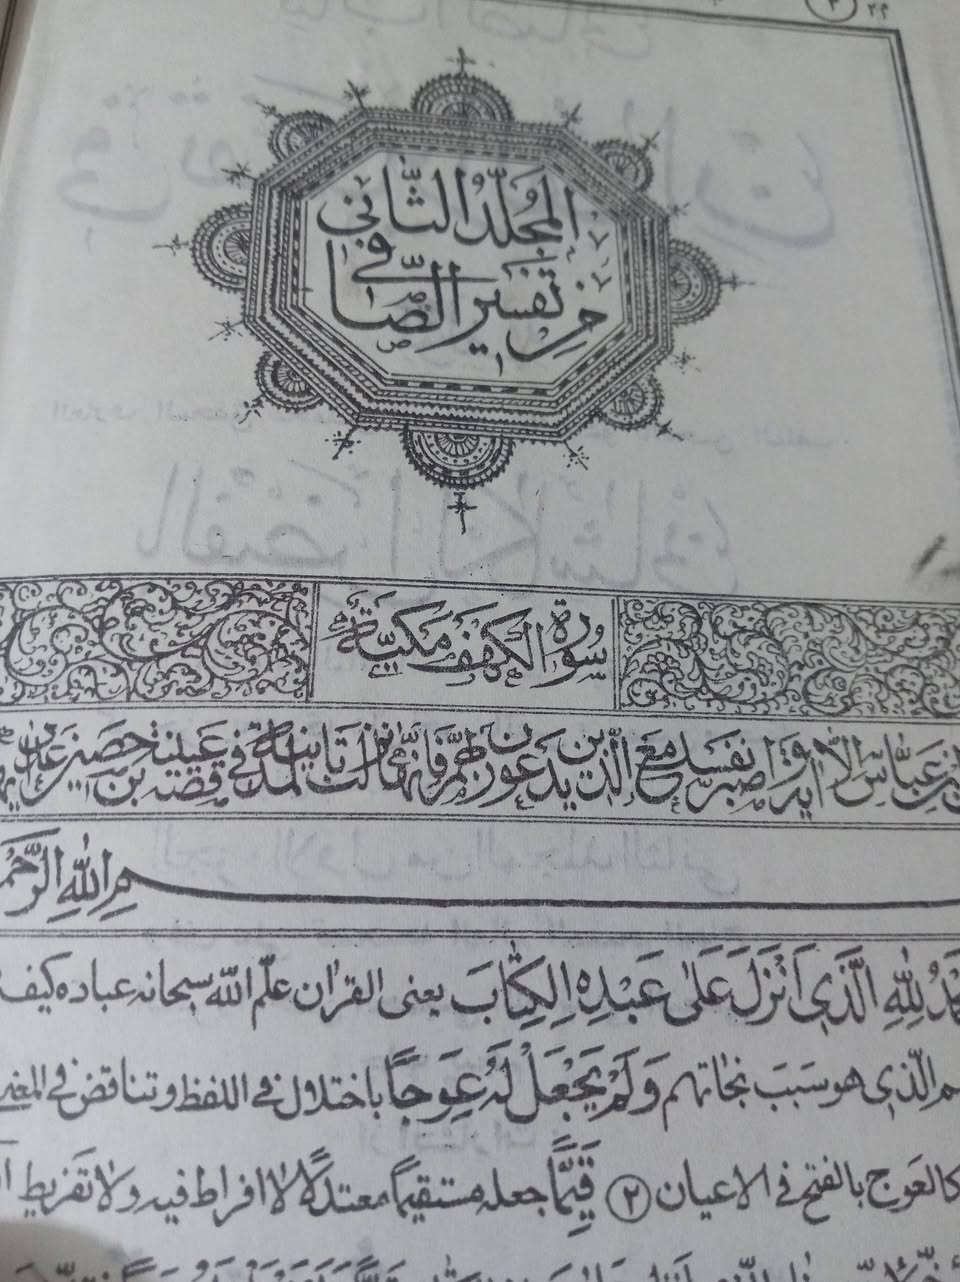 ٢٩
المجلد الثاني
من تفسير الصافي
سورة الكهف مكية
عباس الا آية واصبر نفسك مع الذين يدعون ربهم فانها نزلت بالمدينة في قصة عيينة بن حصين
مِ اللهِ الرَّحْمَ
مْدُ لِلّٰهِ الَّذِي اَنْزَلَ عَلٰى عَبْدِهِ الكِتٰابَ يعنى القرٰان علّم اللّه سبحانه عباده كيف
الّذى هو سبب نجاتهم وَلَمْ يَجْعَلْ لَهُ عِوَجًا باختلال فى اللفظ وتناقض فى المعنى
كالعَوج بالفتح فى الاعيان (٢) قَيِّمًا جعله مستقيمًا معتدلًا لا افراط فيه ولا تفريط